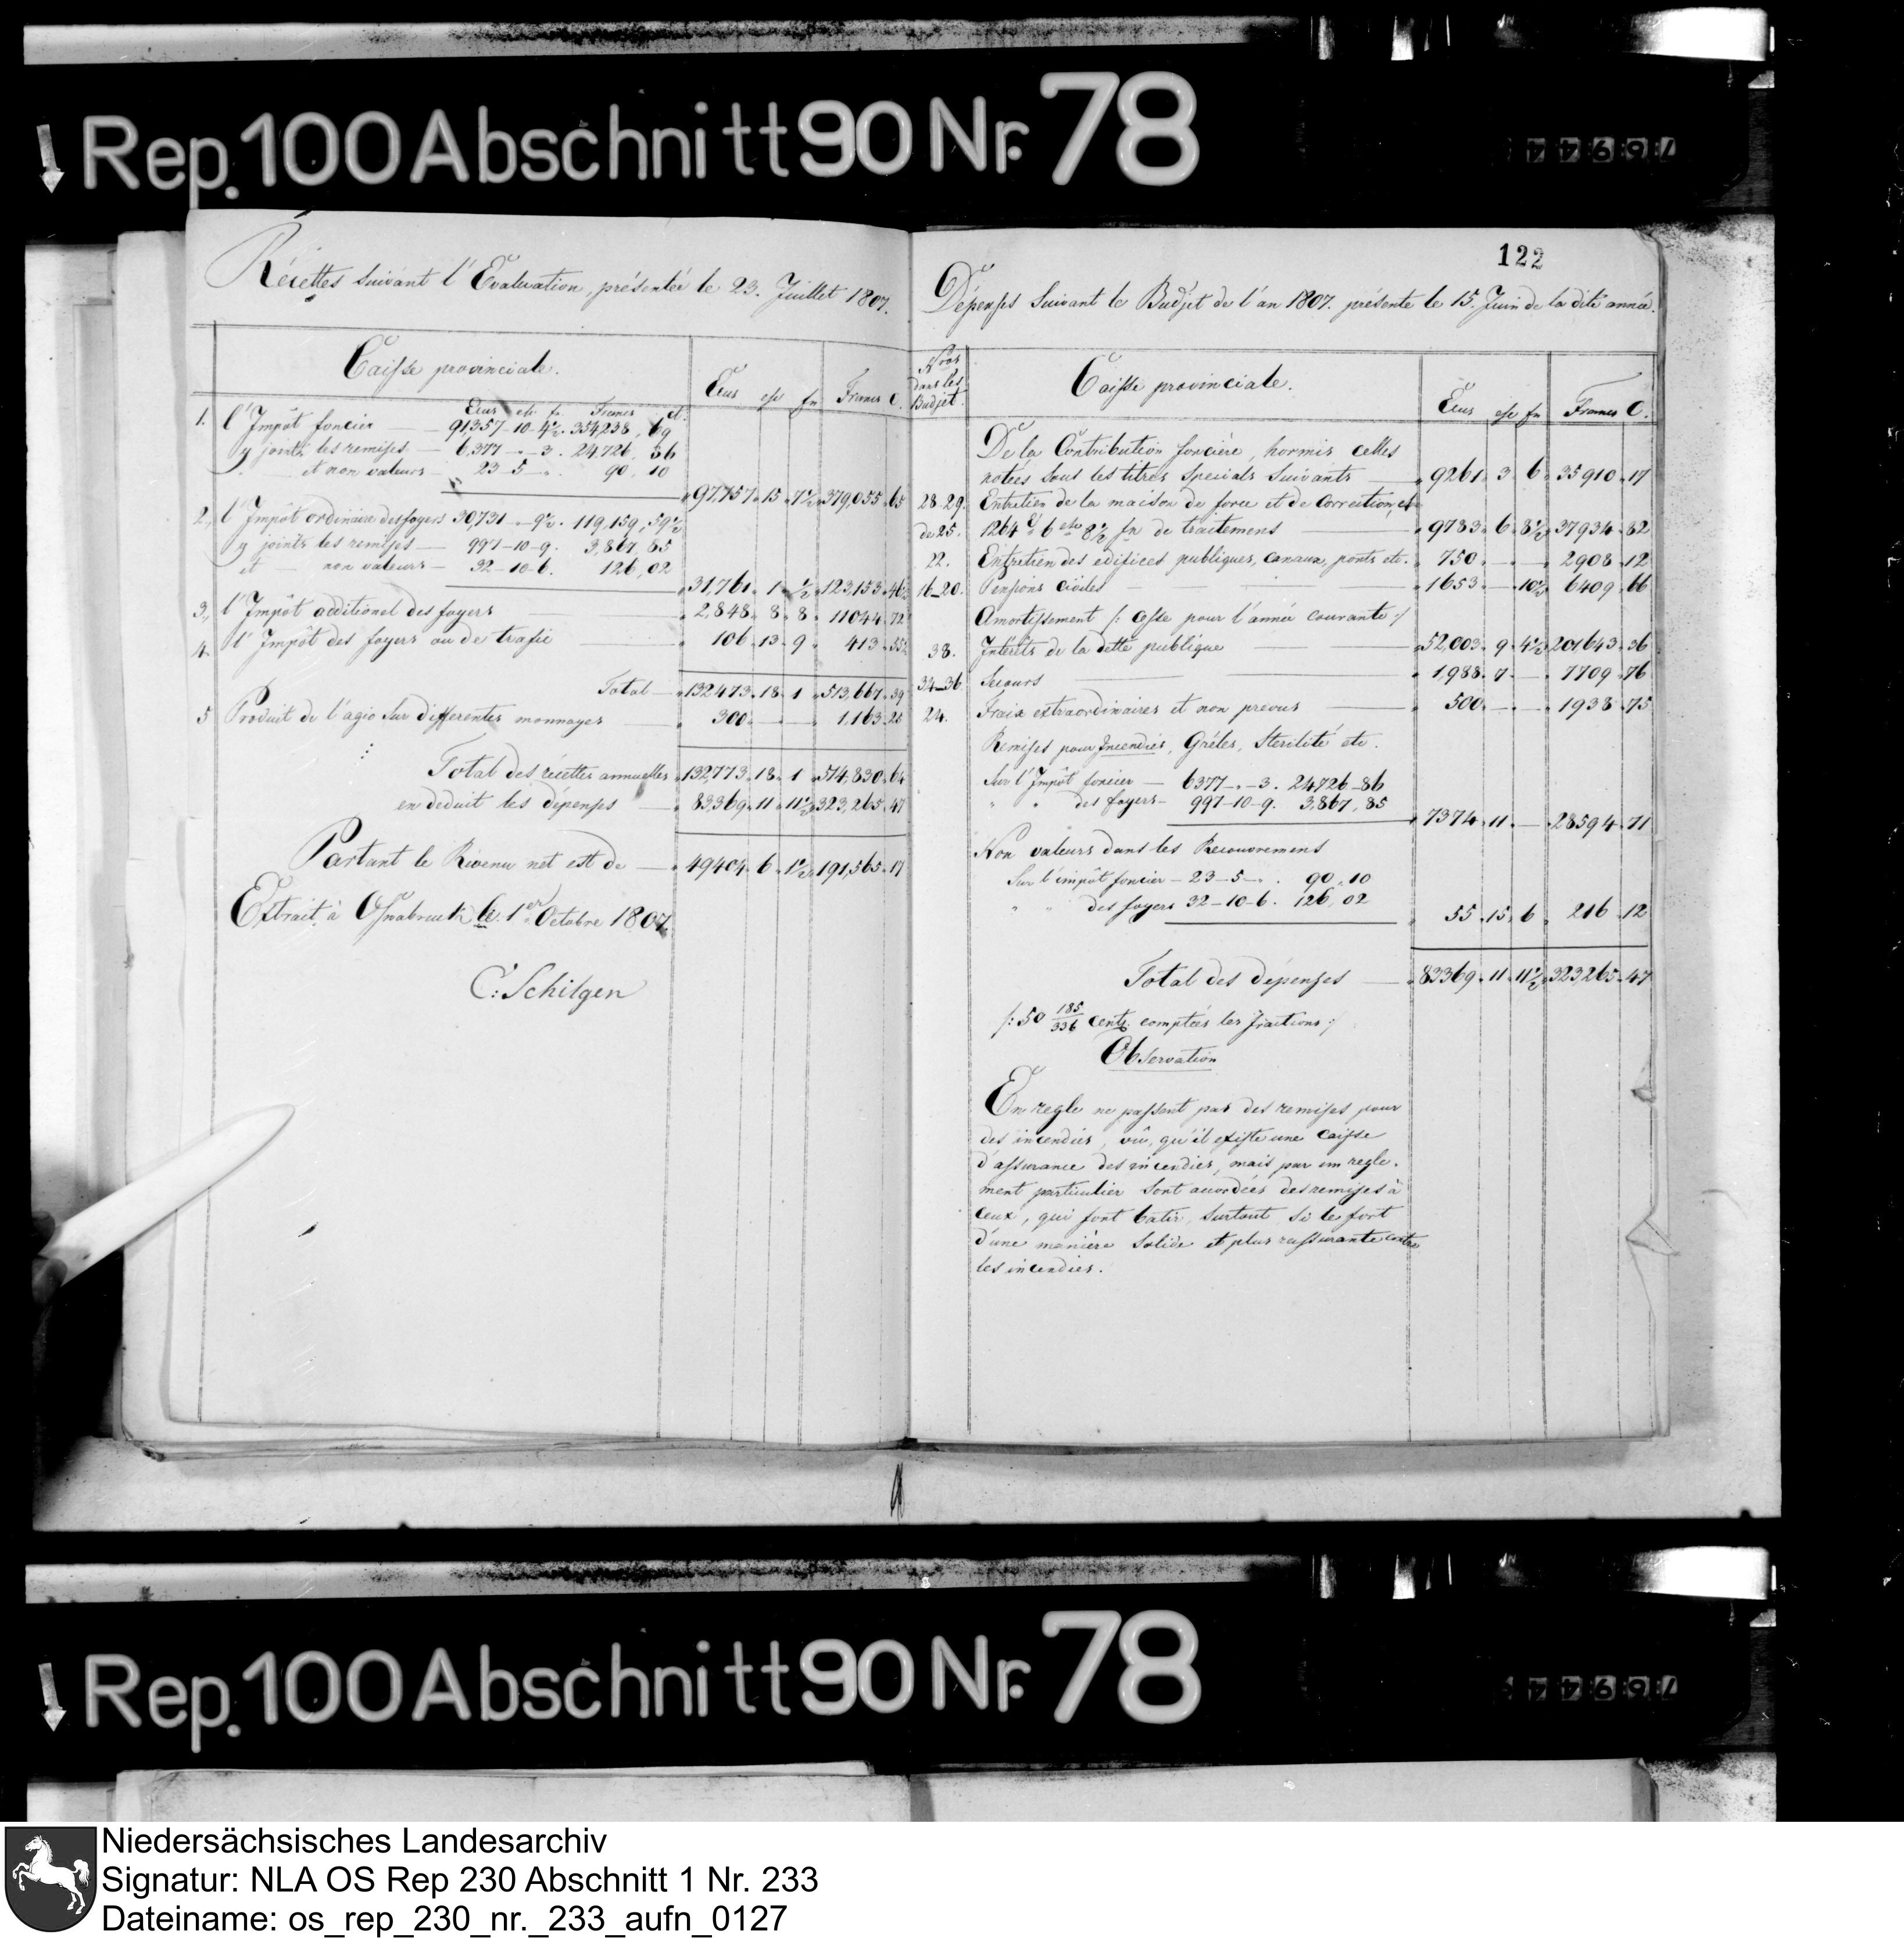 ↓ Rep. 100 Abschnitt 90 Nr. 78
Récettes suivant l'Evaluation, présentée le 23. Juillet 1807.
Caisse provinciale. Ecus esc fn Francs C.
Ecus etc fn. Francs ct.
1. l'Impôt foncier — 91,357-10-4½. 354,238, 69
y joints les remises — 6,377 -„- 3. 24,726, 86
et non valeurs — 23-5-„. 90, 10
97,757. 15. 7½. 379,055. 65
2. l'Impôt ordinaire des foyers 30,731 -„- 9½. 119,159, 59½
y joints les remises — 997-10-9. 3,867, 85
et — non valeurs — 32-10-6. 126, 02
31,761. 1. ½. 123,153. 46½
3. l'Impôt additionel des foyers 2,848. 8. 8. 11044. 72
4. l'Impôt des foyers ou de trafic — 106. 13. 9. 413. 55½
Total — 132473. 18. 1. 513,667. 39
5 Produit de l'agio sur differentes monnoyes — 300. — — 1,163. 25
Total des récettes annuelles 132773. 18. 1. 514,830. 64
en deduit les dépenses — 83369. 11. 11½. 323,265. 47
Partant le Rivenu net est de — 49404. 6. 1½. 191,565. 17
Extrait à Osnabruck le 1er Octobre 1807.
C: Schilgen
122
Dépenses suivant le Budjet de l'an 1807. présente le 15. Juin de la dite année.
Nros dans les Budjet. Caisse provinciale. Ecus esc fn Francs C.
De la Contribution foncière, hormis celles
notées sous les titres specials suivants — 9261. 3. 6. 35910. 17
28-29. Entretien de la maison de force et de correction, et
de 25. 1264 6 8½ fn de traitement — 9783. 6. 8½. 37934. 82
22. Entretien des edifices publiques, canaux, ponts etc. 750. — — 2908. 12
16-20. Pensions civiles — 1653. — 10½. 6409. 66
Amortissement /: cesse pour l'année courante :/
38. Intérêts de la dette publique — 52,003. 9. 4½. 201,643. 36
34-36. Secours — 1,988. 7. — 7709. 76
24. Fraix extraordinaires et non prevus — 500. — — 1938. 75
Remises pour Incendies, Grêles, Sterilité etc.
Sur l'Impôt foncier — 6377 -„- 3. 24,726-86
„ „ des foyers — 997-10-9. 3,867, 85
7374. 11. — 28594. 71
Non valeurs dans les Recouvrement
Sur l'impôt foncier — 23-5-„. 90, 10
„ „ des foyers 32-10-6. 126, 02
55. 15. 6. 216. 12
Total des dépenses — 83369. 11. 11½. 323,265. 47
/: 50 185/336 cents. comptées les fractions :/
Observation
En regle ne passent pas des remises pour
des incendies, vû, qu'il existe une caisse
d'assurance des incendies, mais par un regle-
ment particulier sont accordées des remises à
ceux, qui font batir, surtout si le font
d'une manière solide et plus rassurante contre
les incendies.
↓ Rep. 100 Abschnitt 90 Nr. 78
Niedersächsisches Landesarchiv
Signatur: NLA OS Rep 230 Abschnitt 1 Nr. 233
Dateiname: os_rep_230_nr._233_aufn_0127